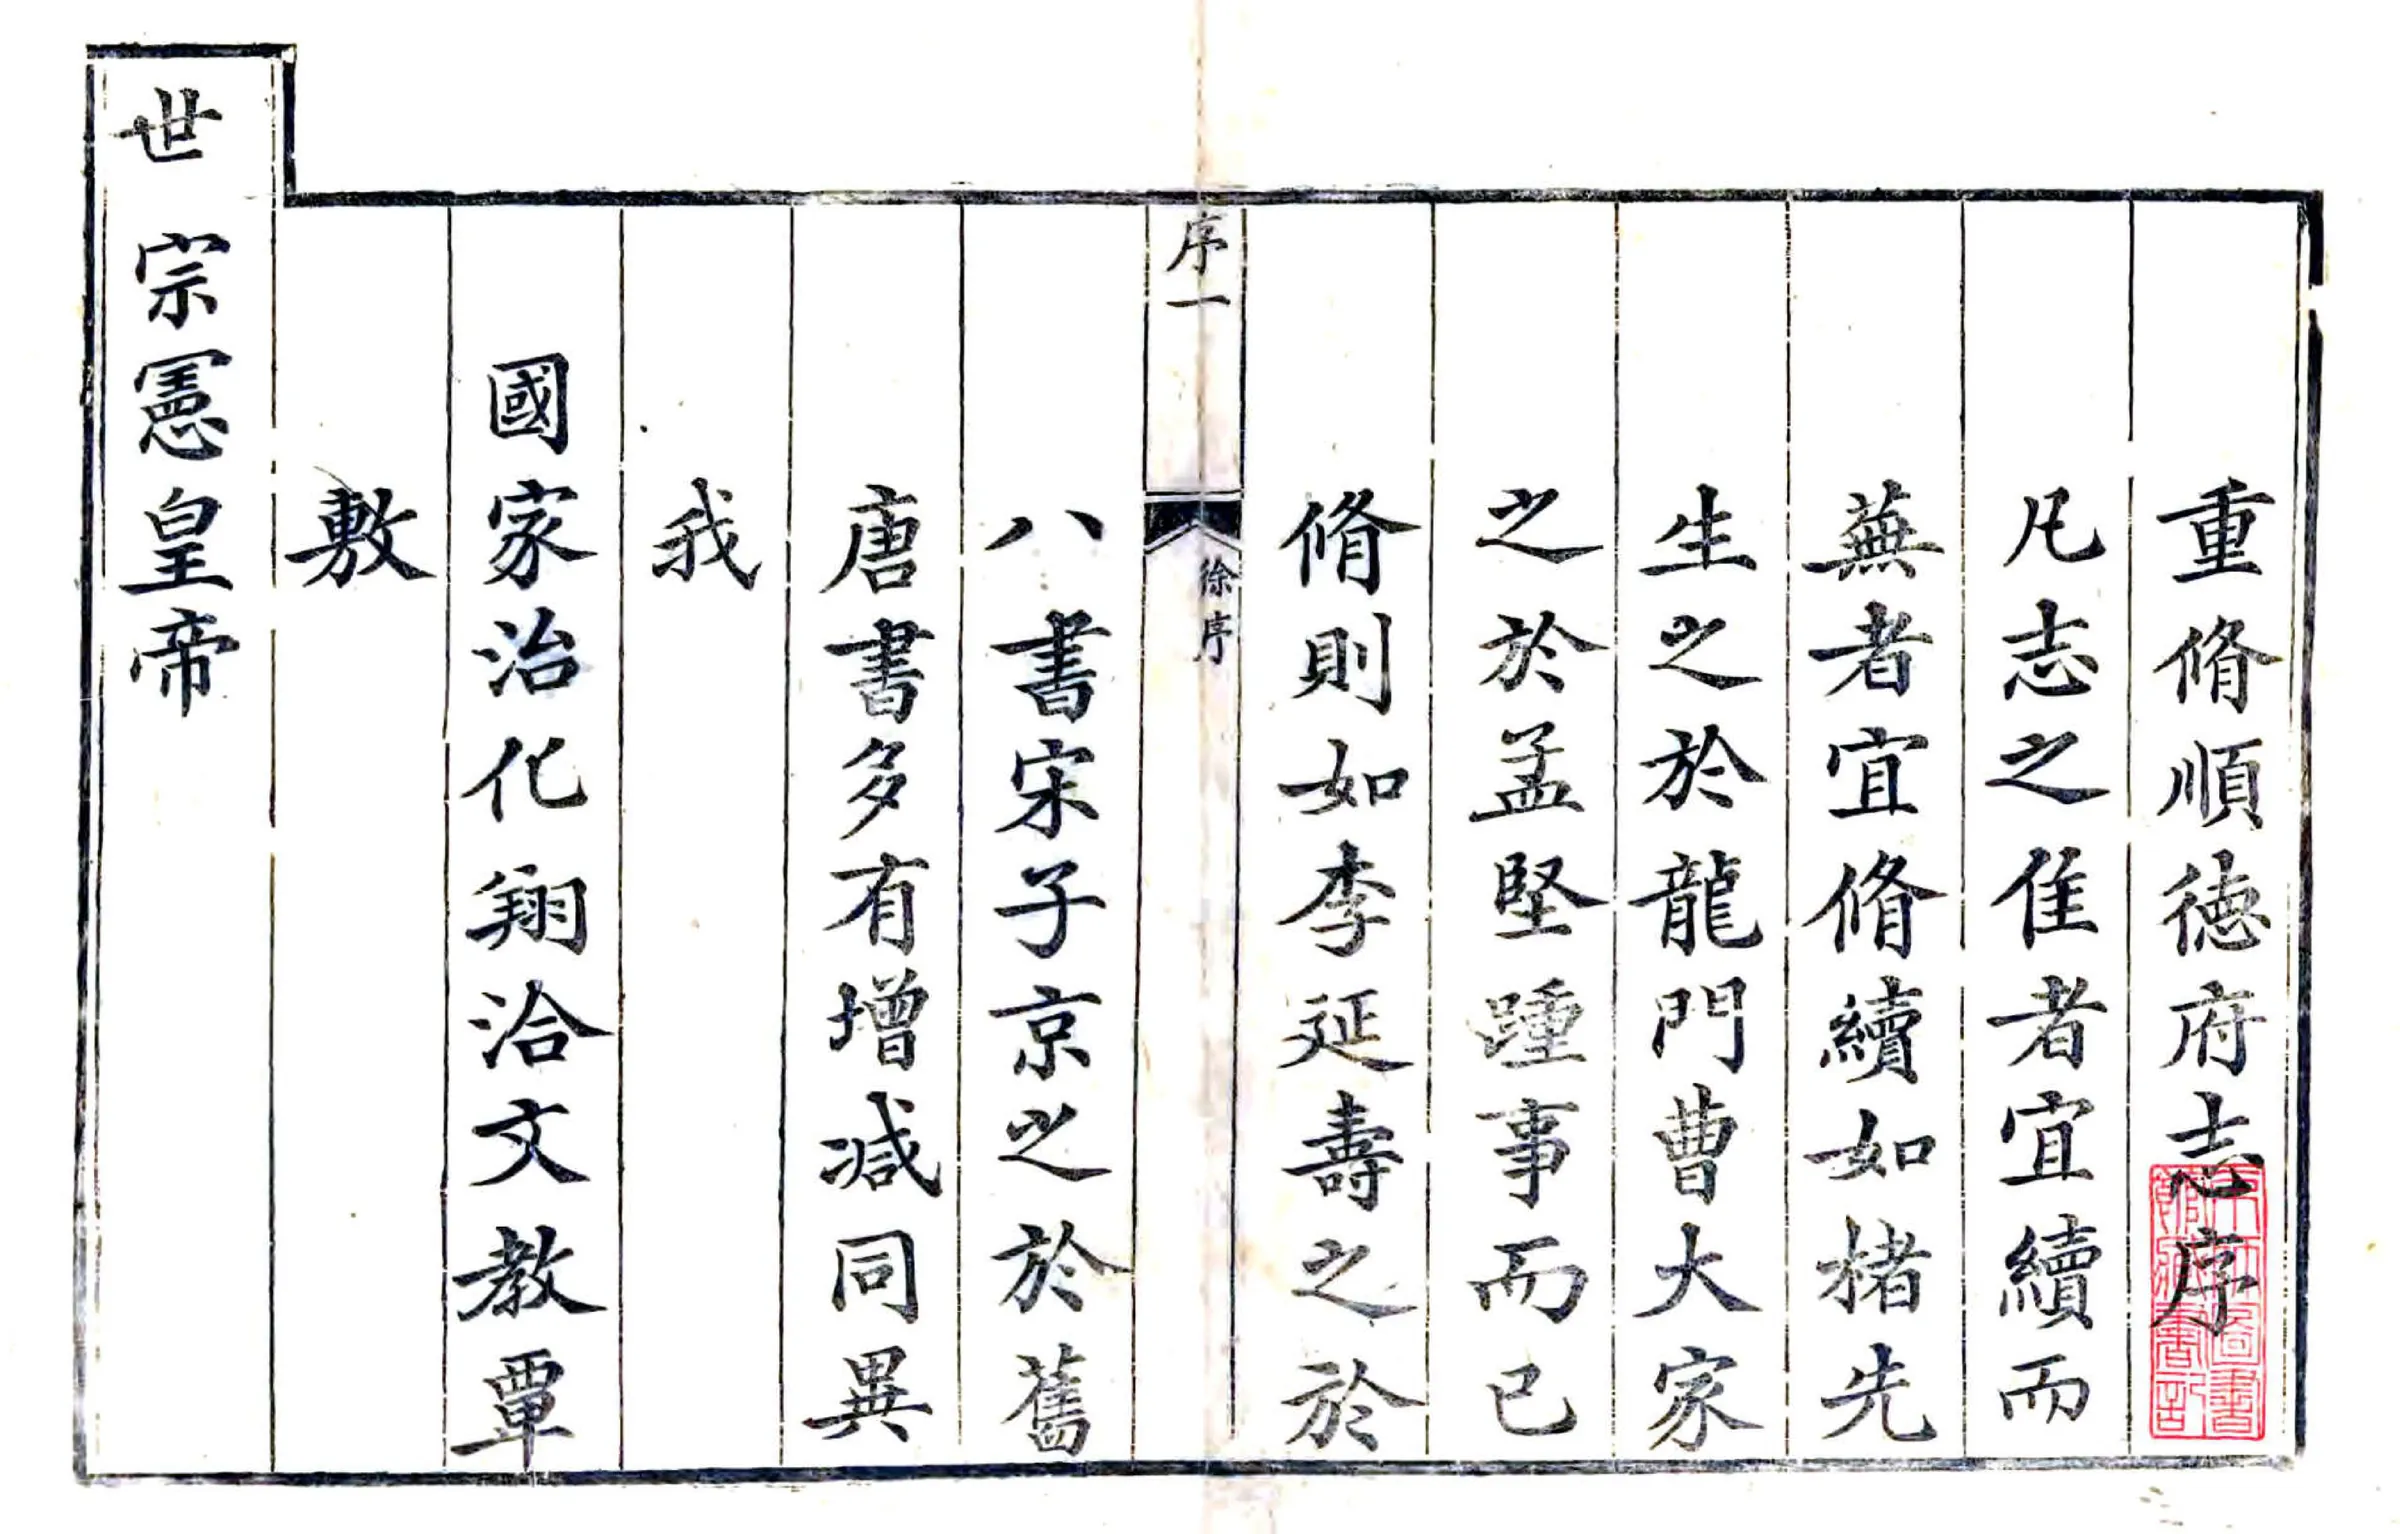 重脩順徳府志序
凡志之隹者宜續而
蕪者宜脩續如楮先
生之於龍門曹大家
之於孟堅踵事而已
脩則如李延壽之於
序一
徐序
八書宋子京之於舊
唐書多有增减同異
我
國家治化翔洽文教覃
敷
世宗憲皇帝